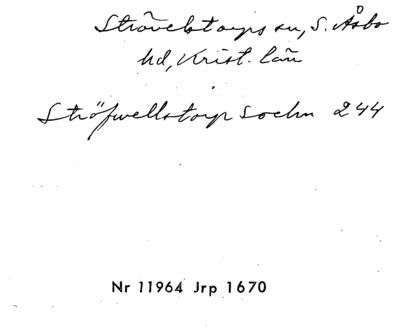 Strövelstorps sn, S. Åsbo
hd, Krist. län
Ströfwellstorp Sochn 244
Nr 11964 Jrp 1670